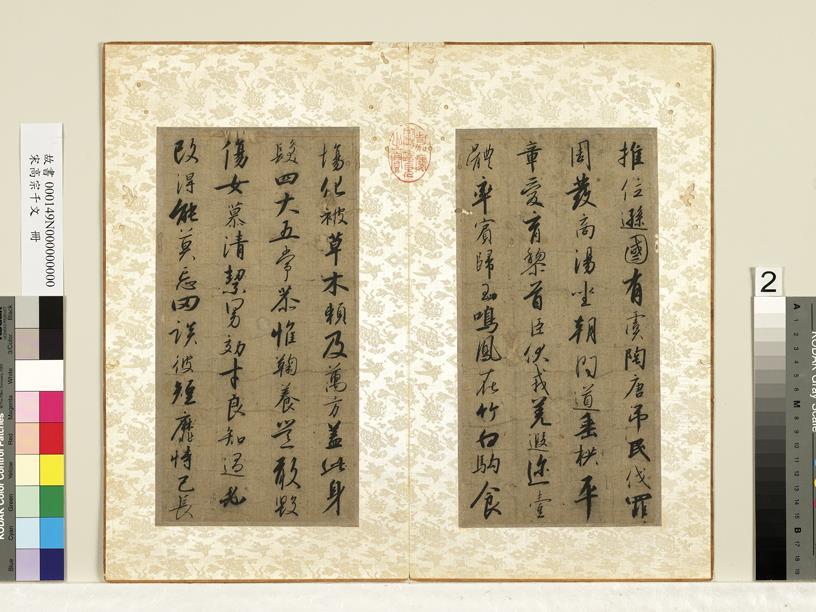 推位遜國有虞陶唐弔民伐罪
周發商湯坐朝問道垂拱平
章愛育黎首臣伏戎羌遐邇壹
體率賓歸王鳴鳳在竹白駒食
場化被草木賴及萬方蓋此身
髮四大五常恭惟鞠養豈敢毀
傷女慕清絜男効才良知過必
改得能莫忘罔談彼短靡恃己長
故書 000149N000000000
宋高宗千文 冊
2
KODAK Color Control Patches
Blue Cyan Green Yellow Red Magenta White 3/Color Black
KODAK Gray Scale
A 1 2 3 4 5 6 M 8 9 10 11 12 13 14 15 B 17 18 19